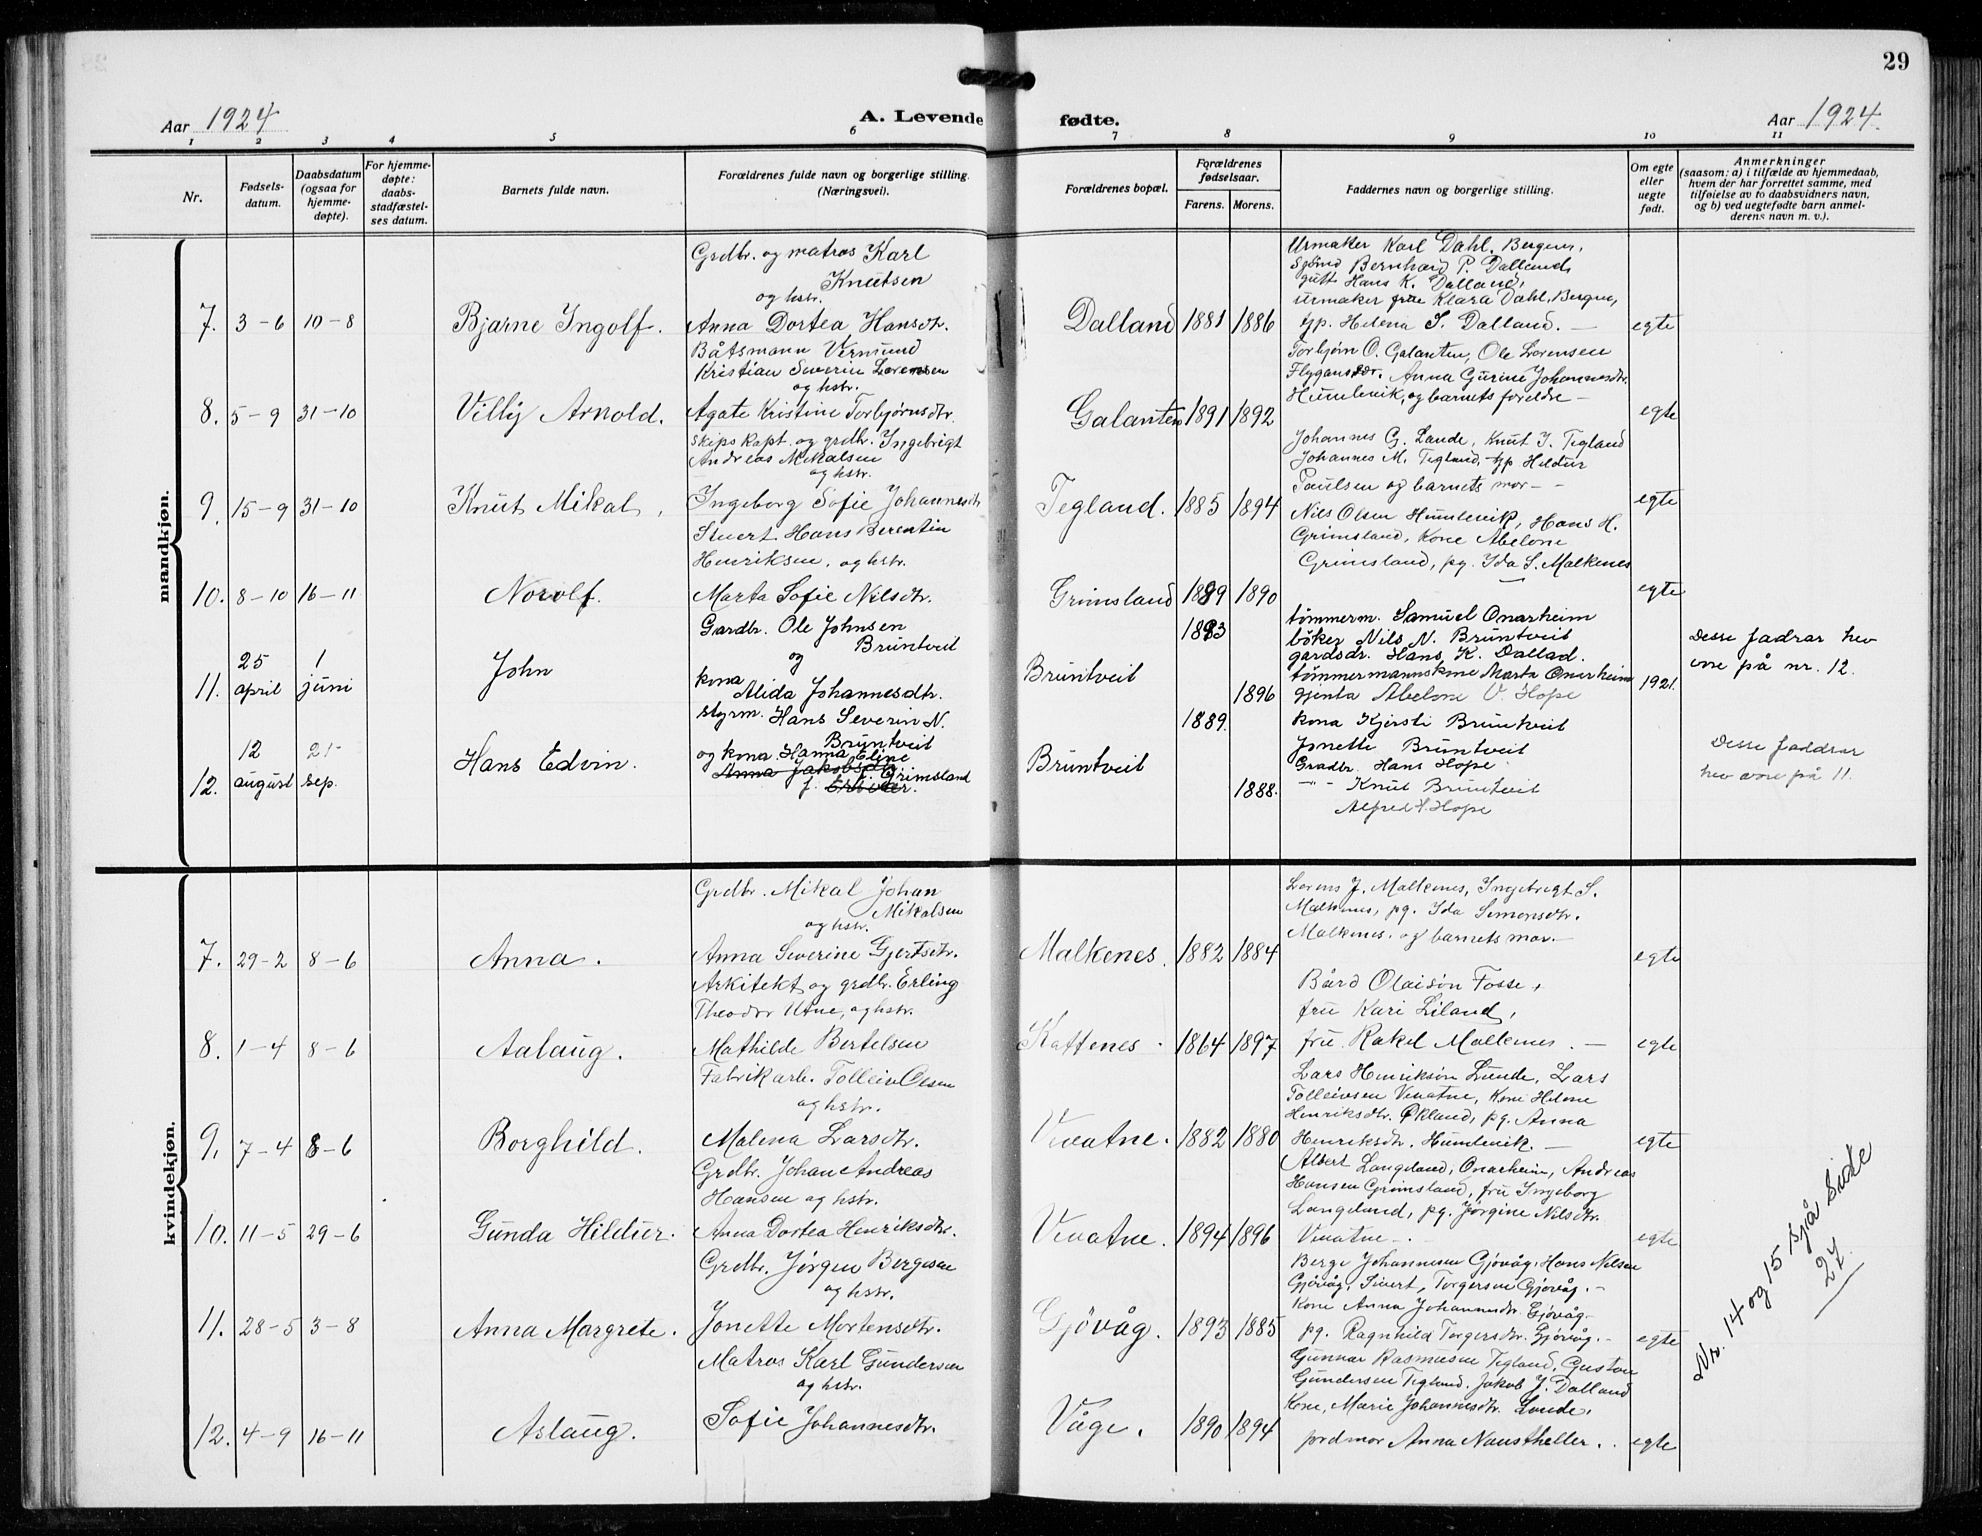 29
Aar 1924
A. Levende fødte.
Aar 1924.
1 2 3 4 5 6 7 8 9 10 11
Nr.
Fødsels-
datum.
Daabsdatum
(ogsaa for
hjemme-
døpte).
For hjemme-
døpte:
daabs-
stadfæstel-
ses datum.
Barnets fulde navn.
Forældrenes fulde navn og borgerlige stilling.
(Næringsvei).
Forældrenes bopæl.
Forældrenes
fødselsaar.
Farens. Morens.
Faddernes navn og borgerlige stilling.
Om egte
eller
uegte
født.
Anmerkninger
(saasom: a) i tilfælde av hjemmedaab,
hvem der har forrettet samme, med
tilføielse av to daabsvidners navn,
og b) ved uegtefødte barn anmel-
derens navn m. v.).
mandkjøn.
7. 3-6 10-8
Bjarne Ingolf.
Grdbr. og matros Karl
Knutsen
og hstr.
Anna Dortea Hansdtr.
Dalland 1881 1886
Urmaker Karl Dahl, Bergen,
Bernhard P. Dalland,
gutt Hans K. Dalland,
urmaker frue Klara Dahl, Bergen,
Helena S. Dalland. —
egte
8. 5-9 31-10
Villy Arnold.
Båtsmann Vermund
Kristian Severin Lorensen
og hstr.
Agate Kristine Torbjørnsdtr.
Galanten 1891 1892
Torbjørn O. Galanten, Ole Lorensen
Anna Gurine Johannesdtr.
Humlevik, og barnets foreldre —
egte
9. 15-9 31-10
Knut Mikal.
Skips kapt. og grdbr. Ingebrigt
Andreas Mikalsen
og hstr.
Ingeborg Sofie Johannesdtr
Tegland. 1885 1894
Johannes G. Lande, Knut I. Tegland
Johannes M. Tegland, Hildur
Paulsen og barnets mor - -
egte
10. 8-10 16-11
Norolf.
Stuert Hans Berentin
Henriksen, og hstr.
Marta Sofie Nilsdtr.
Grimsland 1889 1890
Nils Olsen Humlevik, Hans H.
Grimsland, Kone Abelone
Grimsland, pg. Ida S. Malkenes
—
egte
11. 25 april 1 juni
John
Gardbr. Ole Johnsen
Bruntveit
og
kona
Alida Johannesdtr.
Bruntveit 1893 1896
tømmerm. Samuel Onarheim
bøker Nils N. Bruntveit
gardsdr. Hans K. Dallad.
tømmermannskone Marta Onarheim
gjenta Abelone V Hope
1921.
Desse fadrar hev
vore på nr. 12.
12. 12 august 21 sep.
Hans Edvin.
styrm. Hans Severin N.
Bruntveit
og kona Hanna Eline
Anna Jakobsdtr
f. Grimsland
Bruntveit 1889. 1888.
kona Kjersti Bruntveit
Jonette Bruntveit
Gradbr. Hans Hope
-"- Knut Bruntveit
Alfred H. Hope
Desse faddrar
hev vore på 11.
kvindekjøn.
7. 29-2 8-6
Anna.
Grdbr. Mikal Johan
Mikalsen
og hstr.
Anna Severine Gjertsdtr.
Malkenes. 1882 1884
Lorens J. Malkenes, Ingebregt S.
Malkenes, pg. Ida Simonsdtr.
Malkenes. og barnets mor. —
egte
8. 1-4 8-6
Aslaug.
Arkitekt og grdbr. Erling
Theodor Utne, og hstr.
Mathilde Bertelsen
Kattenes. 1864 1897
Bård Olaisön Fosse,
fru Kari Liland,
fru Rakel Malkenes. —
egte
9. 7-4 8-6
Borghild.
Fabrikarb. Tolleiv Olsen
og hstr.
Malena Larsdtr.
Vevatne. 1882 1880
Lars Henriksön Lunde, Lars
Tolleivsen Vevatne, Kone Helene
Henriksdtr. Økland, pg. Anna
Henriksdtr. Humlevik. —
egte
10. 11-5 29-6
Gunda Hildur.
Grdbr. Johan Andreas
Hansen og hstr.
Anna Dortea Henriksdtr.
Vevatne. 1894 1896
Albert Langeland, Onarheim, Andreas
Hansen Grimsland, fru Ingeborg
Langeland, pg. Jørgine Nilsdtr.
Vevatne -.
egte
11. 28-5 3-8
Anna Margrete.
Grdbr. Jørgen Bergesen
og hstr.
Jonette Mortensdtr.
Gjövåg. 1893 1885
Berge Johannesen Gjövåg, Hans Nilsen
Gjövåg, Sivert Torgersen Gjövåg. -
Kone Anna Johannesdtr. Gjövåg-
pg. Ragnhild Torgersdtr. Gjövåg. -
egte
12. 4-9 16-11
Aslaug.
Matros Karl Gundersen
og hstr.
Sofie Johannesdtr.
Våge. 1890 1894
Gunnar Rasmusen Tegland, Gustav
Gundersen Tegland. Jakob J. Dalland
Kone, Marie Johannesdtr. Lunde,
jordmor Anna Naustheller.
egte
Nr. 14 og 15 sjå side
27.